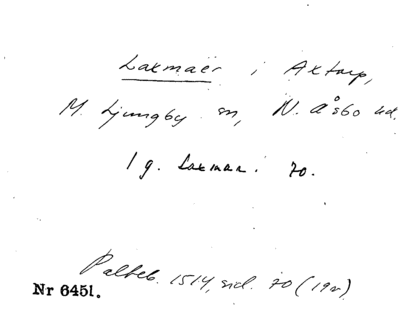 Laxmaër i Axtorp,
M. Ljungby sn, N. Åsbo hd.
1 g. Laxman. 70.
Palteb. 1514, sid. 70 (19r)
Nr 6451.